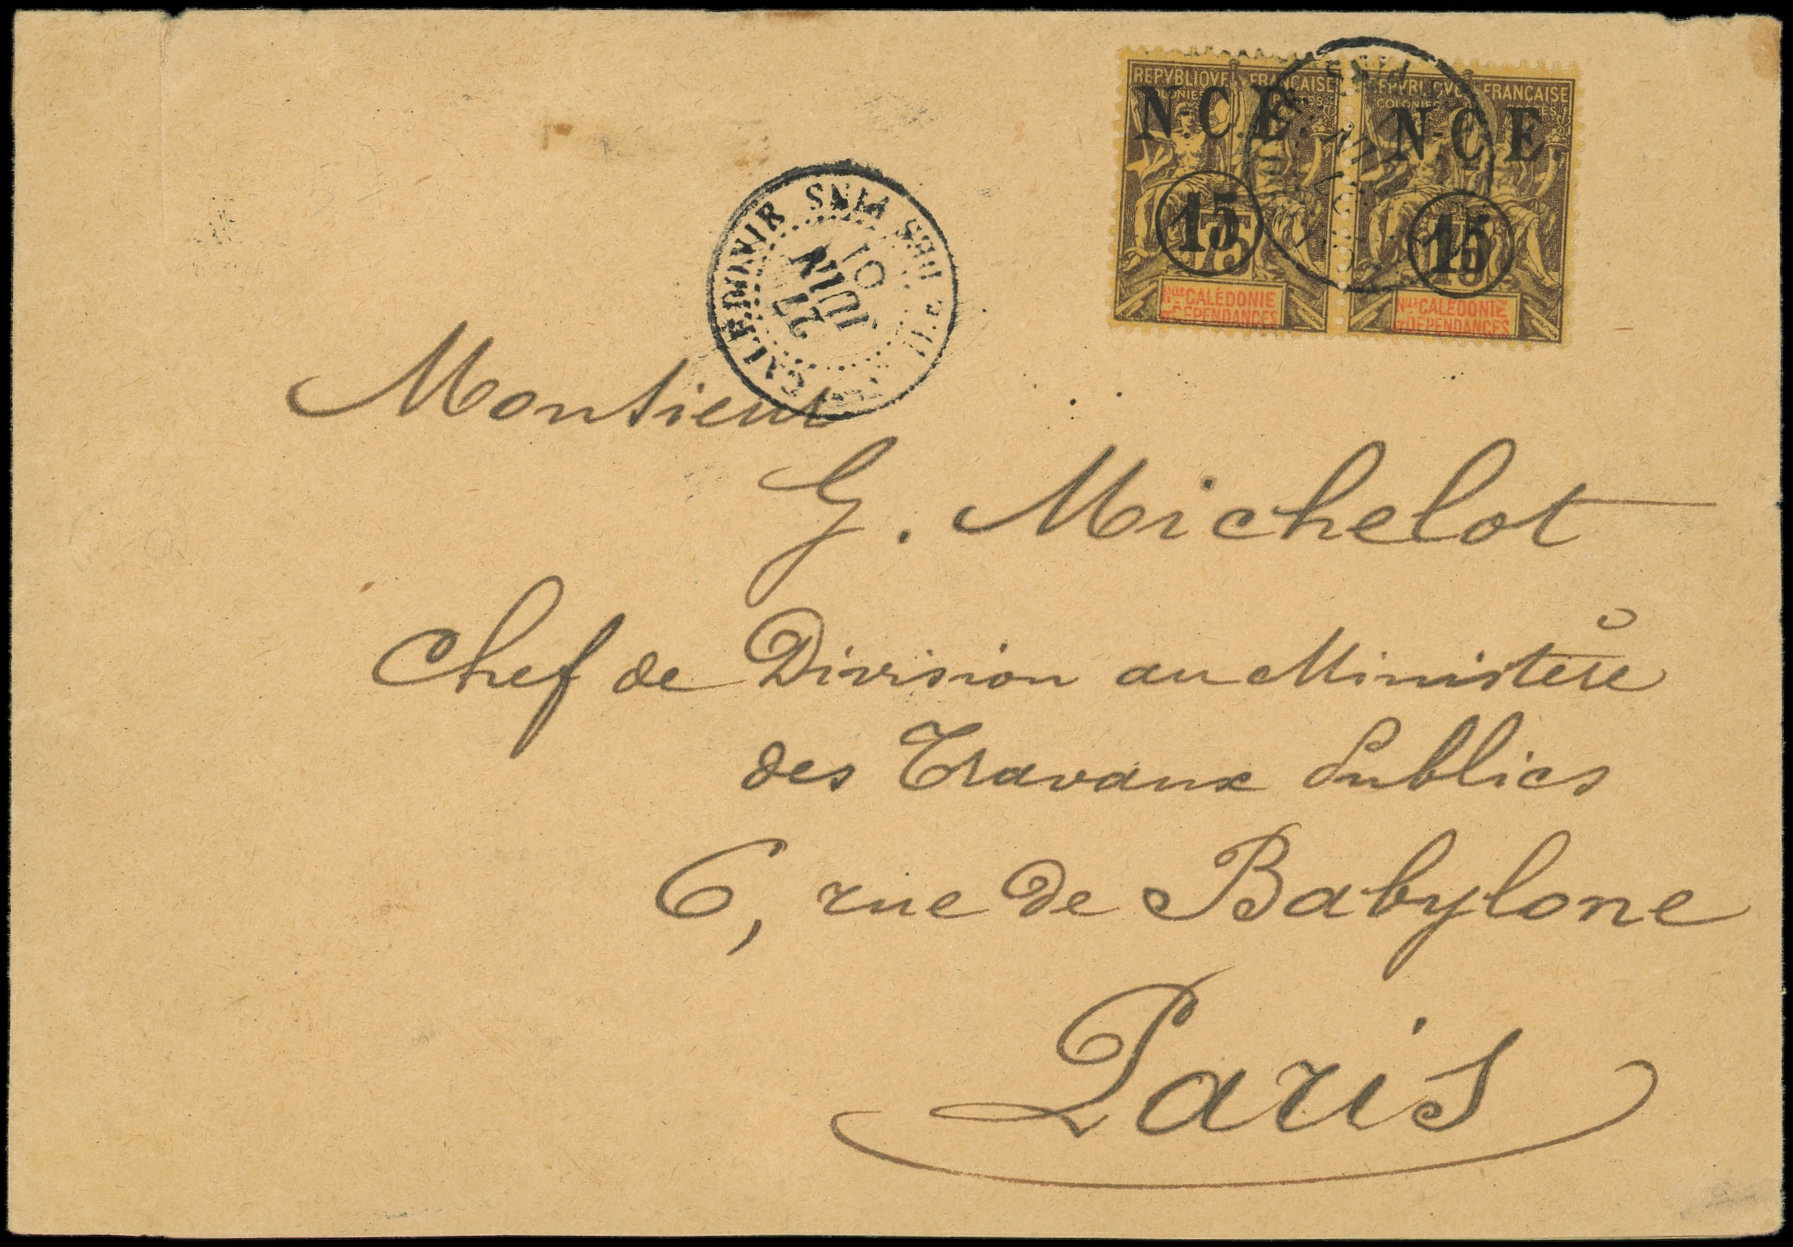 REPVBLIQVE FRANÇAISE
COLONIES POSTES
N-C E.
15
75
Nlle CALÉDONIE
ET DÉPENDANCES
REPVBLIQVE FRANÇAISE
COLONIES POSTES
N-C E.
15
Nlle CALÉDONIE
ET DÉPENDANCES
CALEDONIE ILE DES PINS
27
JUIN
01
Monsieur
G. Michelot
Chef de Division au Ministère
des Travaux Publics
6, rue de Babylone
Paris